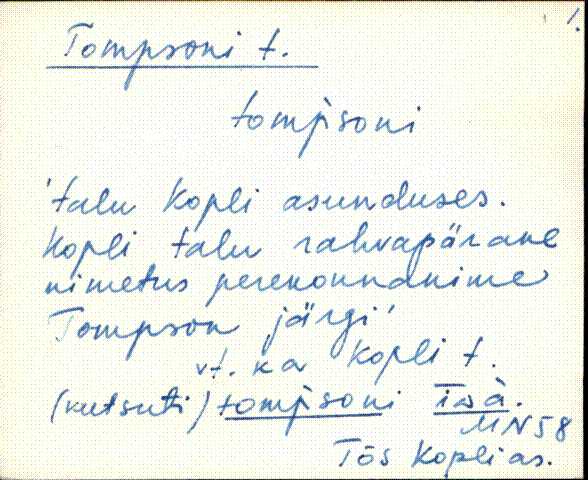 1.
Tompsoni t.
tomp̀soni
'talu Kopli asunduses.
Kopli talu rahvapärane
nimetus perekonnanime
Tompson järgi'
vt. ka Kopli t.
(kutsuti) tomp̀soni
MN58
Tõs Kopli as.